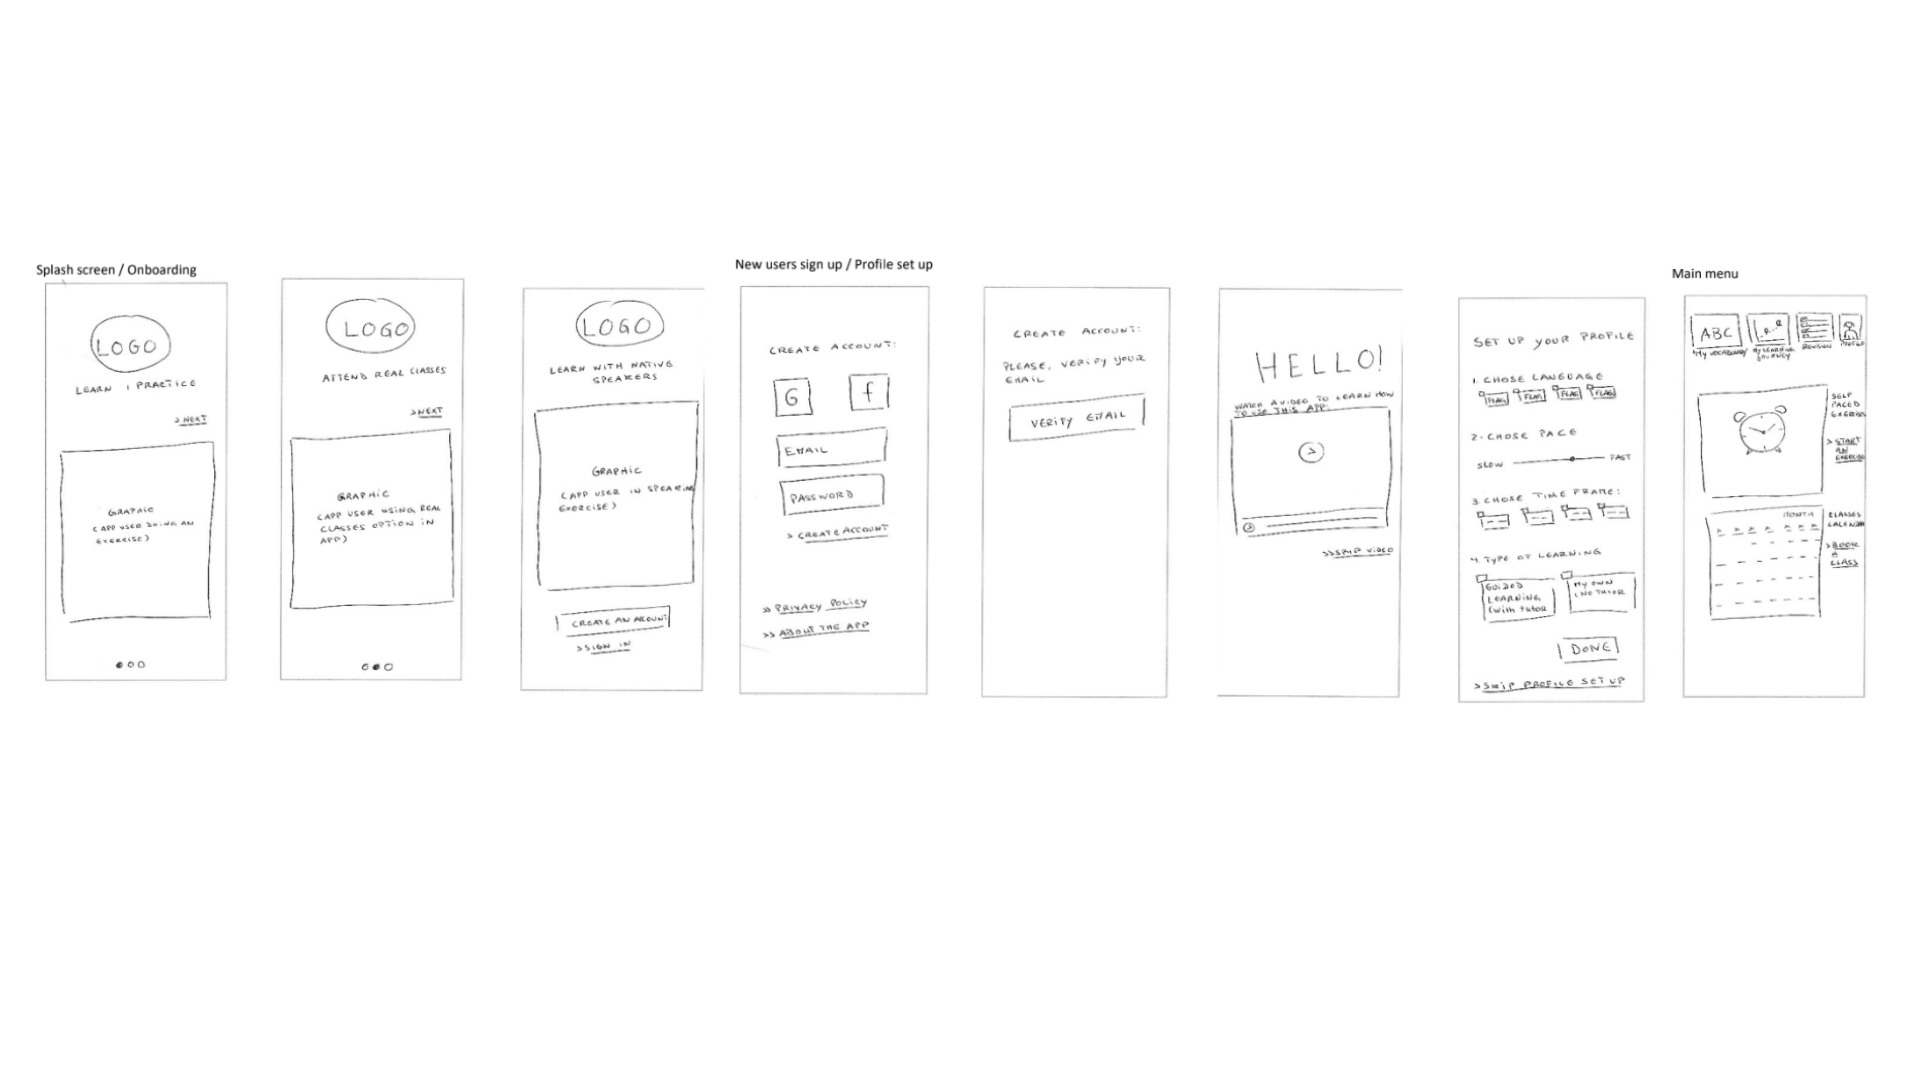 Splash screen / Onboarding
LOGO
LEARN & PRACTICE
> NEXT
GRAPHIC
(APP USER DOING AN
EXERCISE)
LOGO
ATTEND REAL CLASSES
> NEXT
GRAPHIC
(APP USER USING REAL
CLASSES OPTION IN
APP)
LOGO
LEARN WITH NATIVE
SPEAKERS
GRAPHIC
(APP USER IN SPEAKING
EXERCISE)
CREATE AN ACCOUNT
> SIGN IN
New users sign up / Profile set up
CREATE ACCOUNT:
G f
EMAIL
PASSWORD
> CREATE ACCOUNT
>> PRIVACY POLICY
>> ABOUT THE APP
CREATE ACCOUNT:
PLEASE, VERIFY YOUR
EMAIL
VERIFY EMAIL
HELLO!
WATCH A VIDEO TO LEARN HOW
TO USE THIS APP:
>> SKIP VIDEO
SET UP YOUR PROFILE
1. CHOSE LANGUAGE
FLAG FLAG FLAG FLAG
2. CHOSE PACE
SLOW FAST
3. CHOSE TIME FRAME:
4. TYPE OF LEARNING
GUIDED
LEARNING
(with tutor
MY OWN
(NO TUTOR
DONE
> SKIP PROFILE SET UP
Main menu
ABC
MY VOCABULARY
MY LEARNING
JOURNEY
REVISION
PROFILE
SELF
PACED
EXERCISE
> START
AN
EXERCISE
MONTH
CLASSES
CALENDAR
> BOOK
A
CLASS